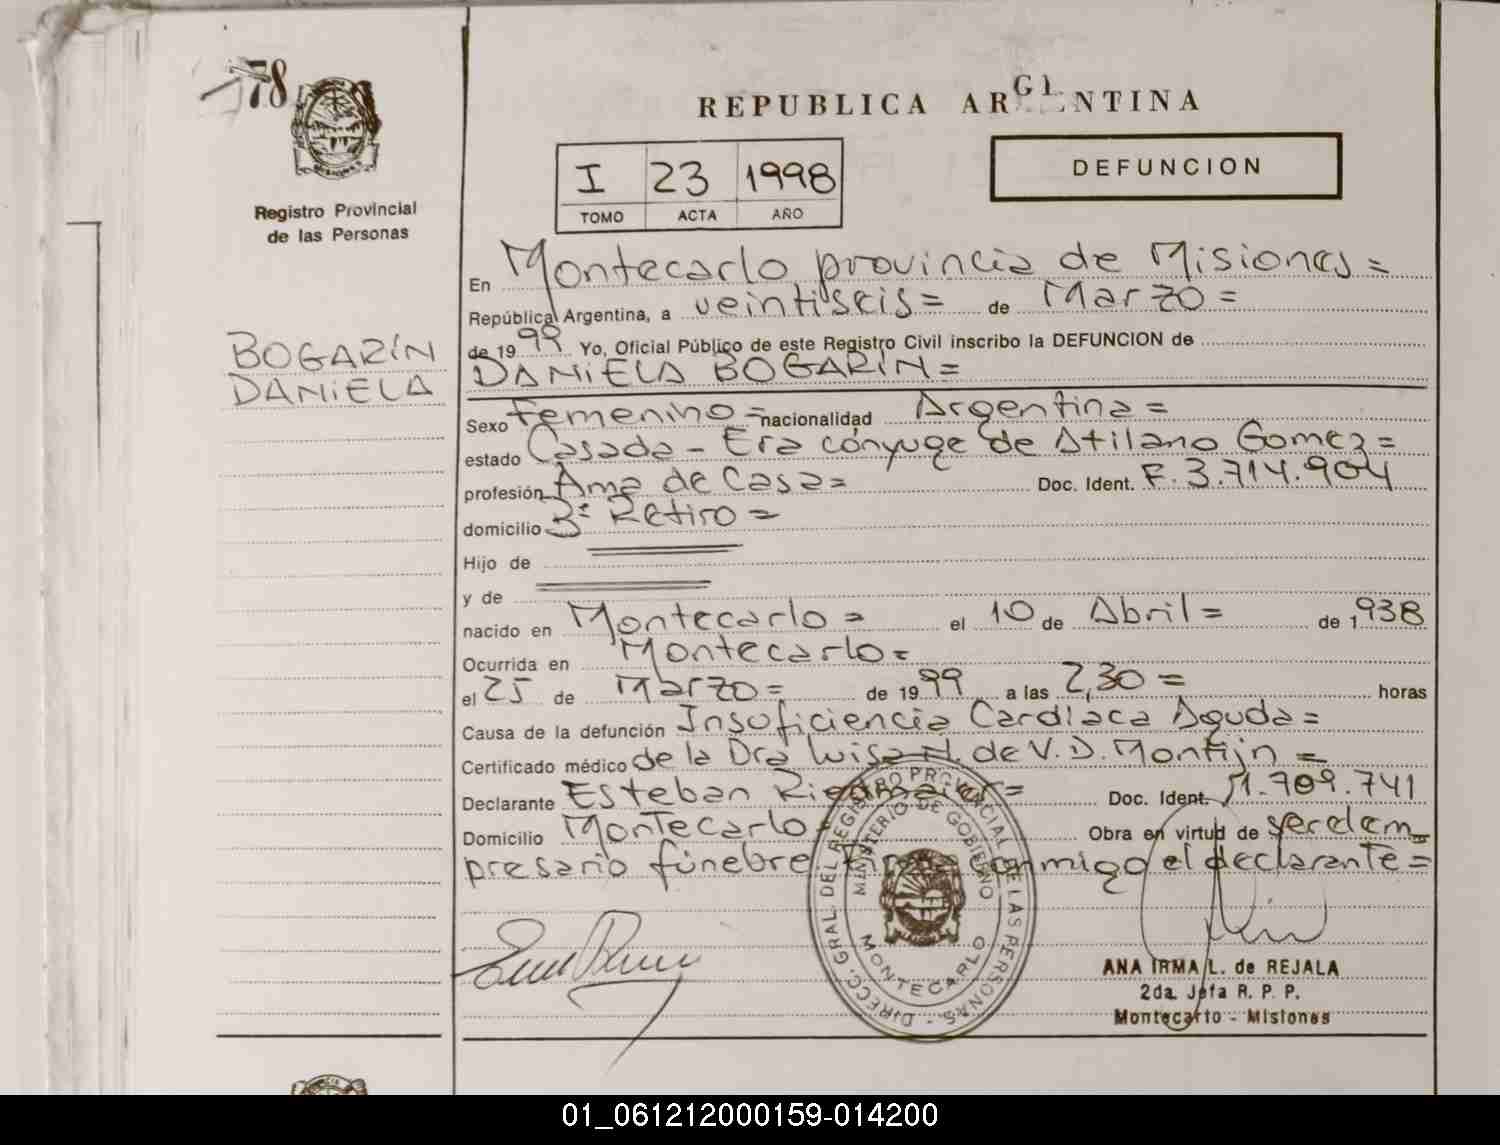 78
REPUBLICA ARGENTINA
I 23 1998
TOMO ACTA AÑO
DEFUNCION
Registro Provincial
de las Personas
BOGARÍN
DANIELA
En Montecarlo provincia de Misiones=
República Argentina, a veintiseis= de Marzo=
de 1999 Yo, Oficial Público de este Registro Civil inscribo la DEFUNCION de
DANIELA BOGARIN=
Sexo Femenino= nacionalidad Argentina=
estado Casada - Era cónyuge de Atilano Gomez=
profesión Ama de Casa= Doc. Ident. F. 3.714.904
domicilio 3º Retiro=
Hijo de
y de
nacido en Montecarlo= el 10 de Abril= de 1938
Ocurrida en Montecarlo=
el 25 de Marzo= de 1999 a las 2,30= horas
Causa de la defunción Insuficiencia Cardíaca Aguda=
Certificado médico de la Dra Luisa H. de V. D. Montijn=
Declarante Esteban = Doc. Ident. 11.709.741
Domicilio Montecarlo= Obra en virtud de ser el em_
presario fúnebre Firma conmigo el declarante=
DIRECC. GRAL. DEL REGISTRO PROVINCIAL DE LAS PERSONAS -
MINISTERIO DE GOBIERNO
MONTECARLO
ANA IRMA L. de REJALA
2da. Jefa R. P. P.
Montecarlo - Misiones
01_061212000159-014200